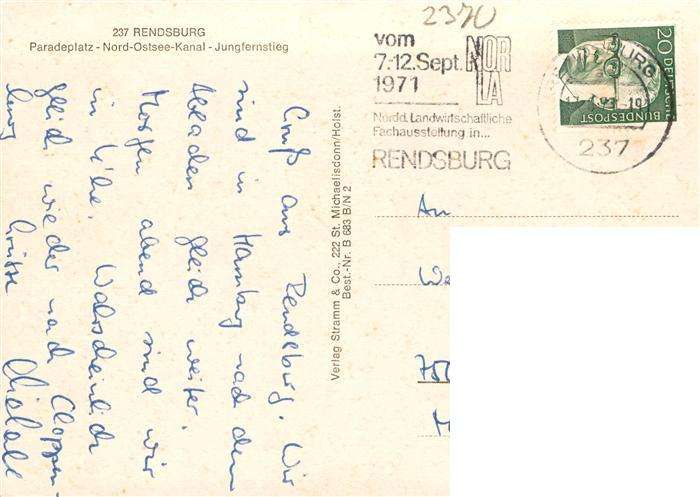 237 RENDSBURG
Paradeplatz - Nord-Ostsee-Kanal - Jungfernstieg
2370
vom
7.-12. Sept.
1971
NOR
LA
Nordd. Landwirtschaftliche
Fachausstellung in...
RENDSBURG
237
20
DEUTSCHE
BUNDESPOST
Gruß aus Rendsburg. Wir
sind in Hamburg nach dem
Abladen gleich weiter.
Morgen abend sind wir
in Uhe. Wahrscheinlich
gleich wieder nach Cloppen-
burg
Grüsse
Michael
Verlag Stramm & Co., 222 St. Michaelisdonn/Holst.
Best.-Nr. B 683 B/N 2
An